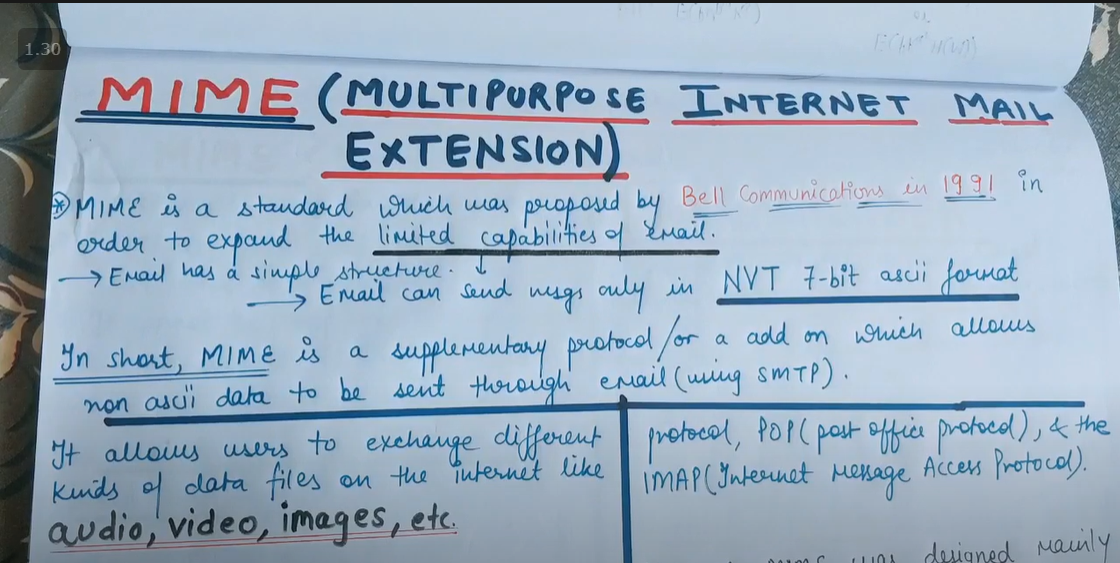 1.30
MIME (MULTIPURPOSE INTERNET MAIL
EXTENSION)
MIME is a standard which was proposed by Bell Communications in 1991 in
order to expand the limited capabilities of Email.
→ Email has a simple structure. ↓
→ Email can send msgs only in NVT 7-bit ascii format
In short, MIME is a supplementary protocol/or a add on which allows
non ascii data to be sent through email (using SMTP).
It allows users to exchange different
kinds of data files on the internet like
audio, video, images, etc.
protocol, POP (post office protocol), & the
IMAP (Internet Message Access Protocol).
was designed mainly